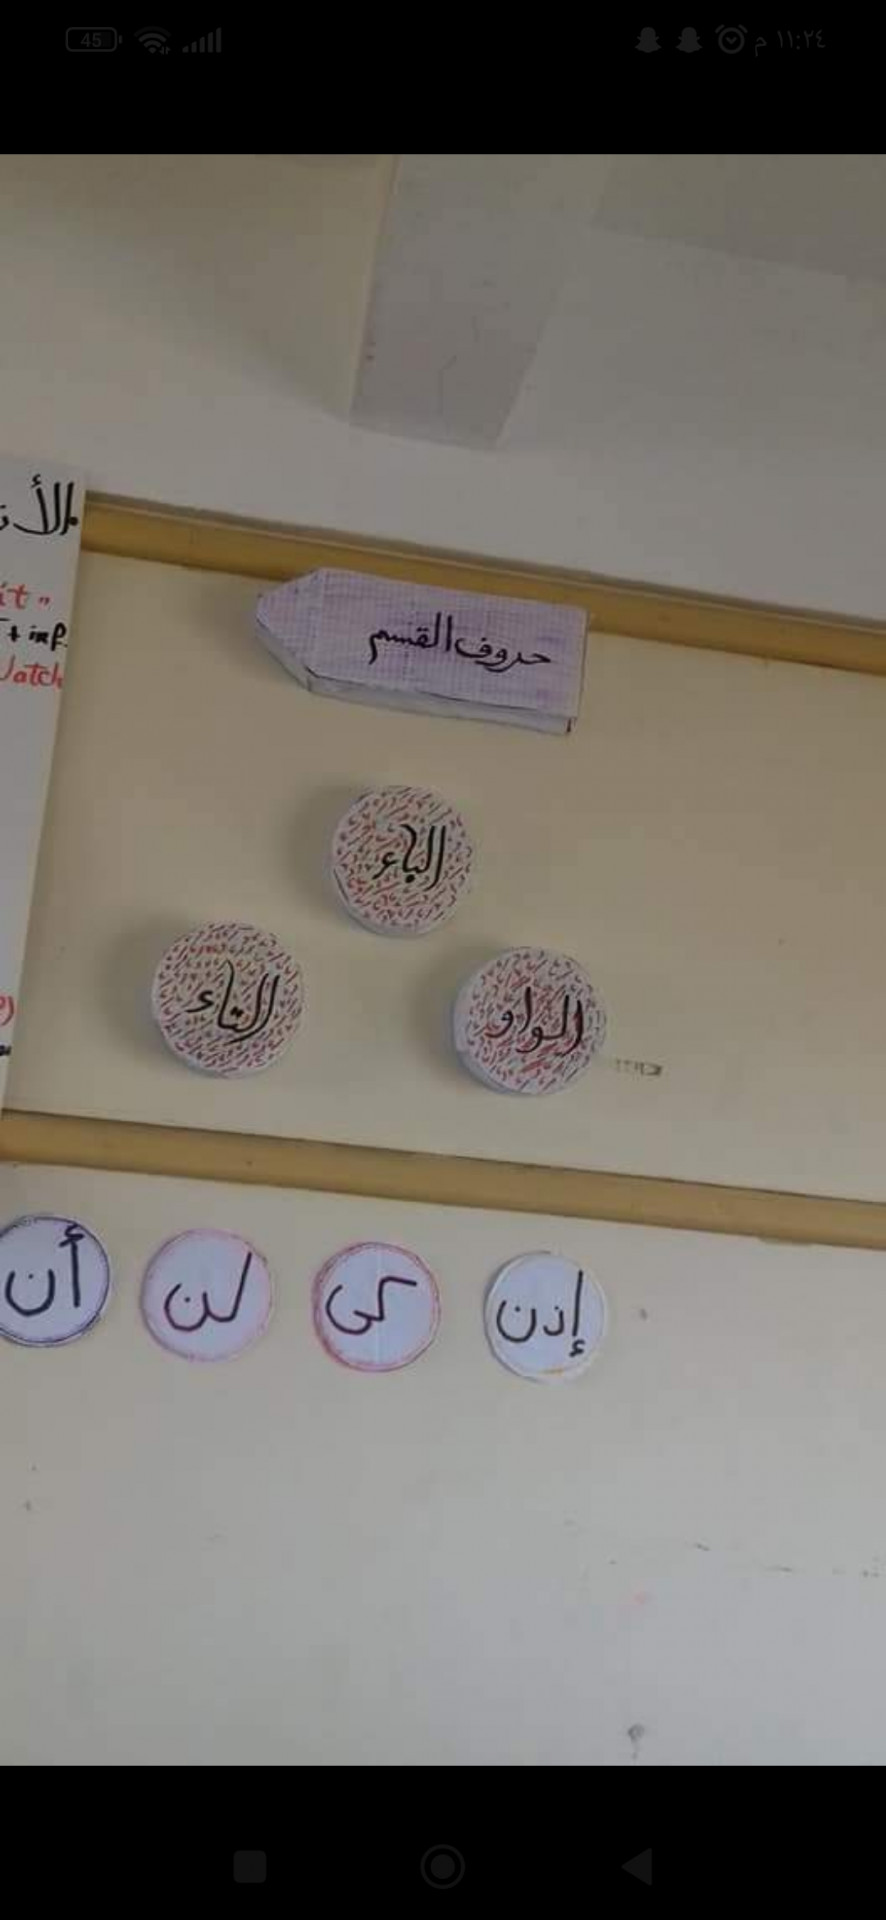 45
١١:٢٤ م
it"
+ inf.
حروف القسم
الباء
التاء
الواو
أن
لن
كى
إذن